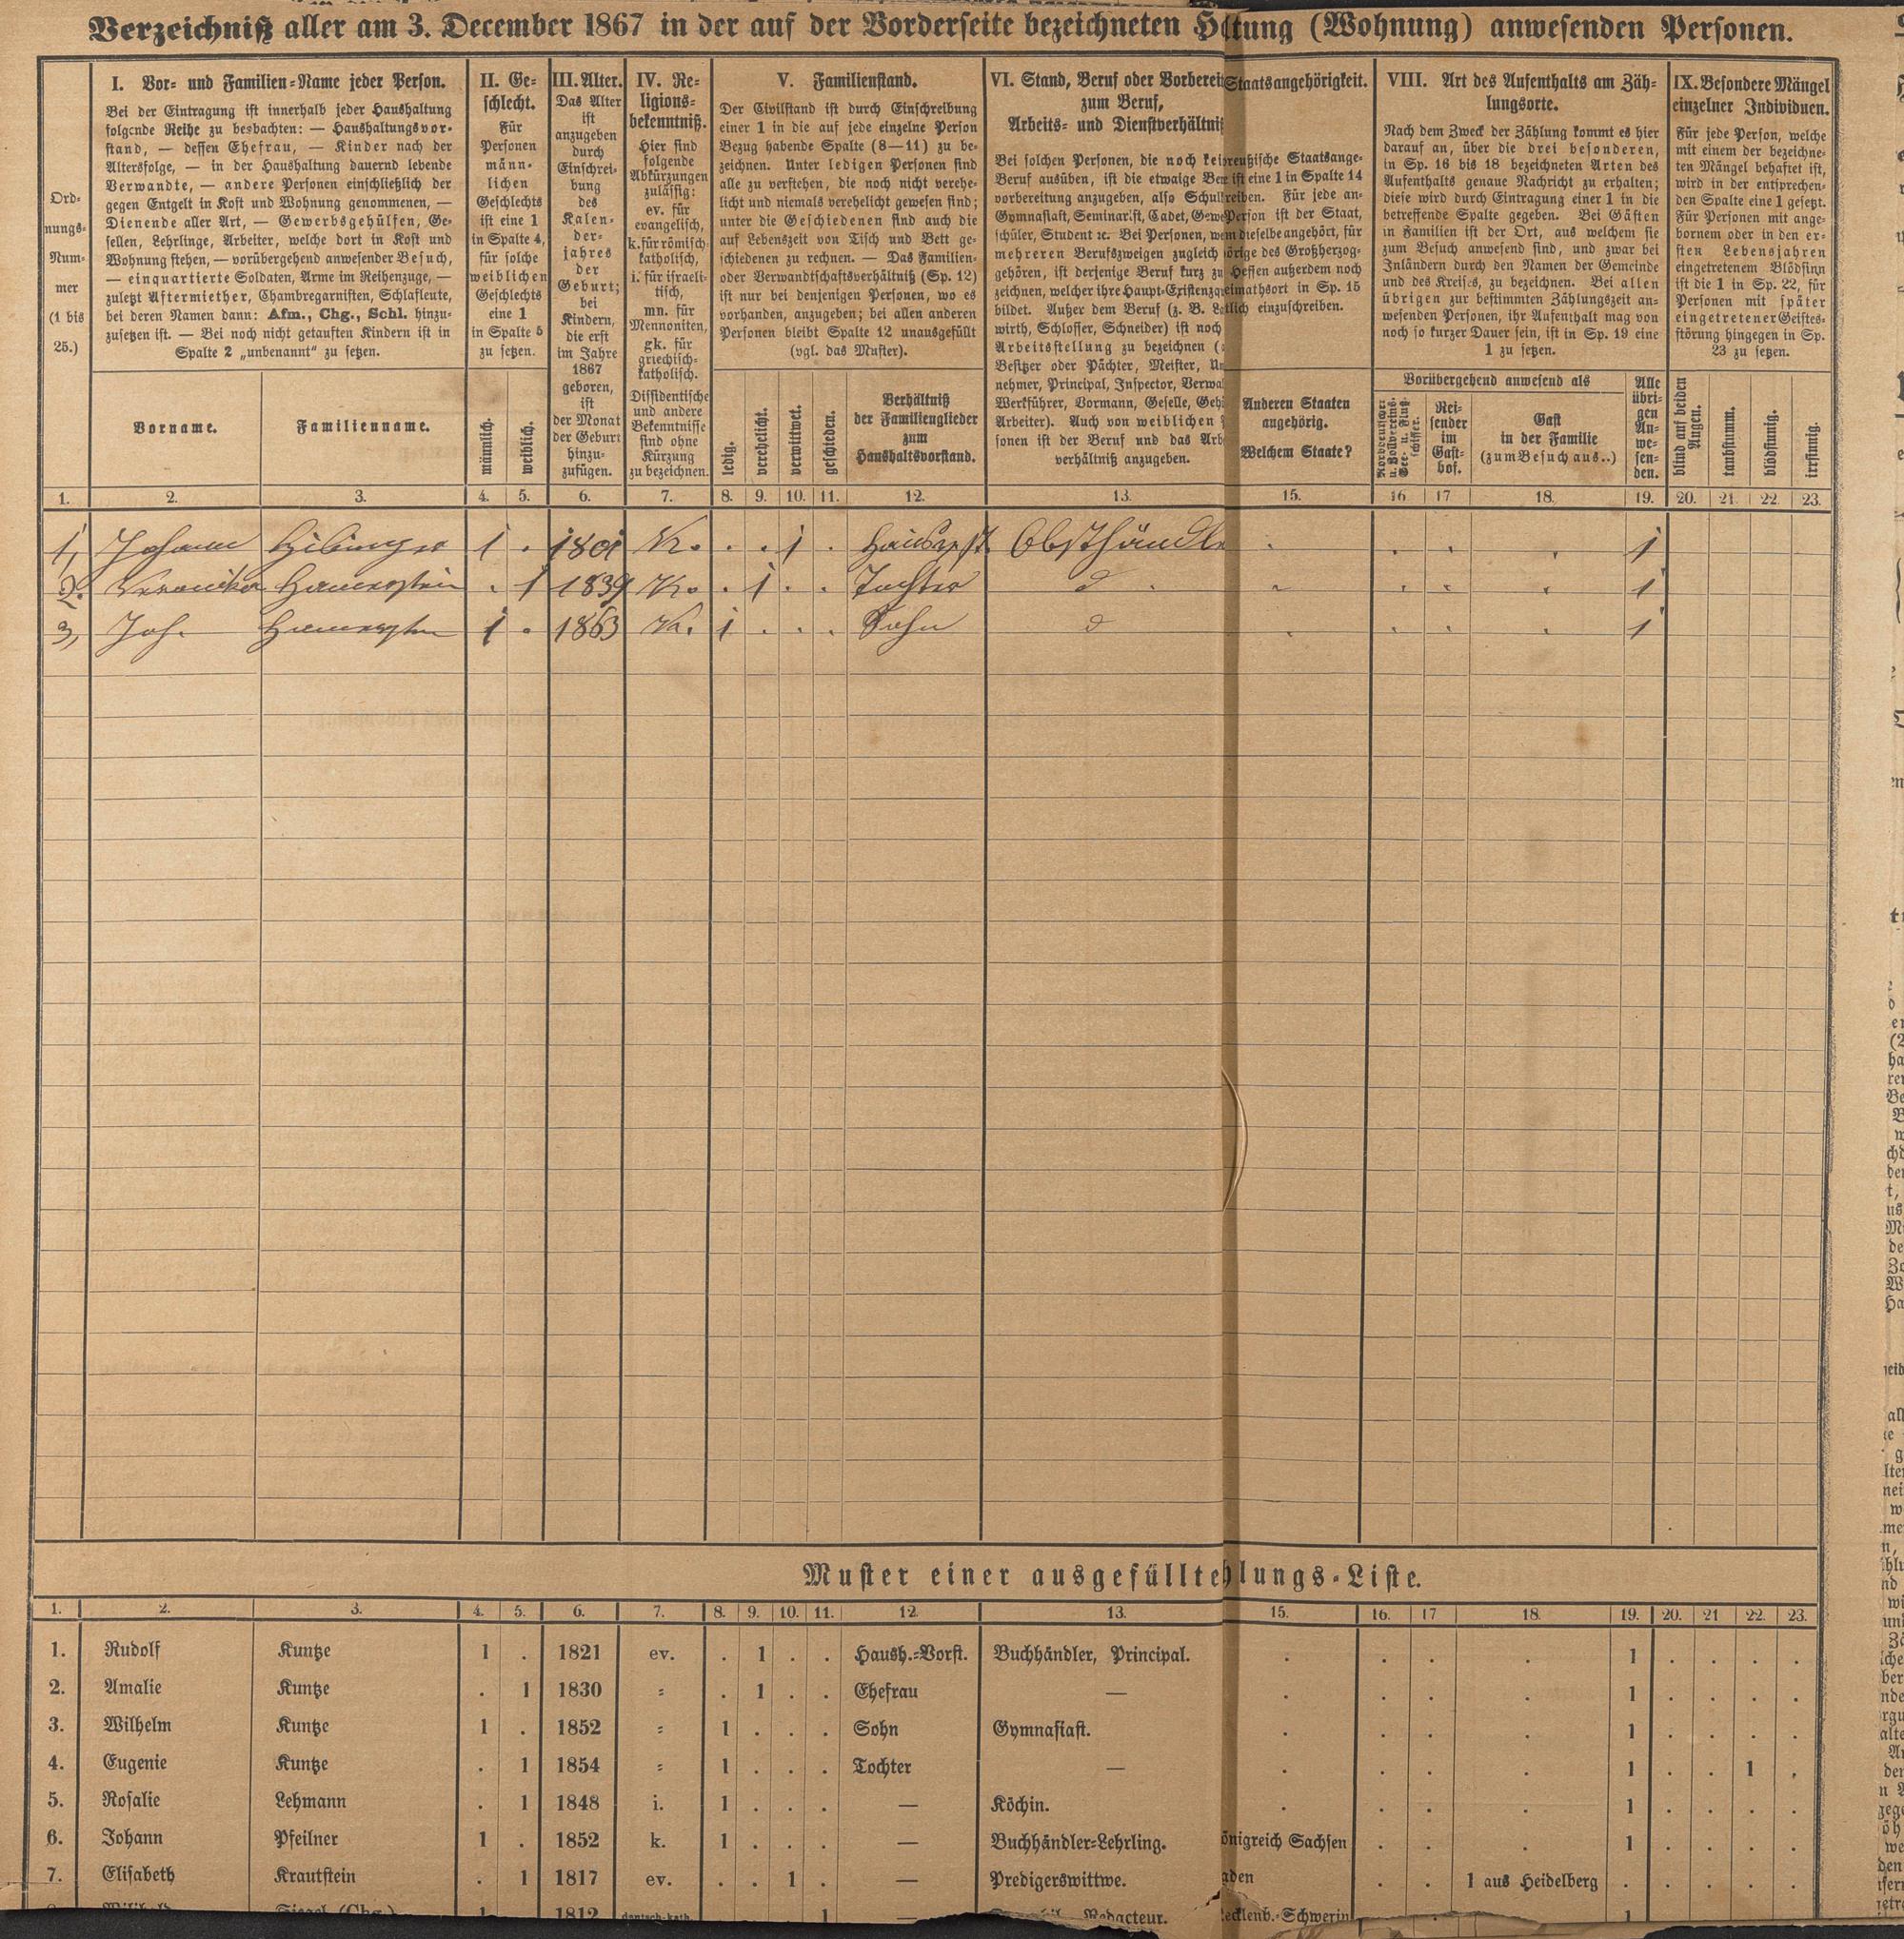 Verzeichniß aller am 3. December 1867 in der auf der Vorderseite bezeichneten H tung (Wohnung) anwesenden Personen.
Ord-
nungs-
Num-
mer
(1 bis
25.)
I. Vor- und Familien-Name jeder Person.
Bei der Eintragung ist innerhalb jeder Haushaltung
folgende Reihe zu beobachten: — Haushaltungsvor-
stand, — dessen Ehefrau, — Kinder nach der
Altersfolge, — in der Haushaltung dauernd lebende
Verwandte, — andere Personen einschließlich der
gegen Entgelt in Kost und Wohnung genommenen, —
Dienende aller Art, — Gewerbsgehülfen, Ge-
sellen, Lehrlinge, Arbeiter, welche dort in Kost und
Wohnung stehen, — vorübergehend anwesender Besuch,
— einquartierte Soldaten, Arme im Reihenzuge, —
zuletzt Aftermiether, Chambregarnisten, Schlafleute,
bei deren Namen dann: Afm., Chg., Schl. hinzu-
zusetzen ist. — Bei noch nicht getauften Kindern ist in
Spalte 2 „unbenannt“ zu setzen.
Vorname.
Familienname.
II. Ge-
schlecht.
Für
Personen
männ-
lichen
Geschlechts
ist eine 1
in Spalte 4,
für solche
weiblichen
Geschlechts
eine 1
in Spalte 5
zu setzen.
männlich.
weiblich.
III. Alter.
Das Alter
ist
anzugeben
durch
Einschrei-
bung
des
Kalen-
der-
jahres
der
Geburt;
bei
Kindern,
die erst
im Jahre
1867
geboren,
ist
der Monat
der Geburt
hinzu-
zufügen.
IV. Re-
ligions-
bekenntniß.
Hier sind
folgende
Abkürzungen
zulässig:
ev. für
evangelisch,
k. für römisch-
katholisch,
i. für israeli-
tisch,
mn. für
Mennoniten,
gk. für
griechisch-
katholisch.
Dissidentische
und andere
Bekenntnisse
sind ohne
Kürzung
zu bezeichnen.
V. Familienstand.
Der Civilstand ist durch Einschreibung
einer 1 in die auf jede einzelne Person
Bezug habende Spalte (8—11) zu be-
zeichnen. Unter ledigen Personen sind
alle zu verstehen, die noch nicht verehe-
licht und niemals verehelicht gewesen sind;
unter die Geschiedenen sind auch die
auf Lebenszeit von Tisch und Bett ge-
schiedenen zu rechnen. — Das Familien-
oder Verwandtschaftsverhältniß (Sp. 12)
ist nur bei denjenigen Personen, wo es
vorhanden, anzugeben; bei allen anderen
Personen bleibt Spalte 12 unausgefüllt
(vgl. das Muster).
ledig.
verehelicht.
verwittwet.
geschieden.
Verhältniß
der Familienglieder
zum
Haushaltsvorstand.
VI. Stand, Beruf oder Vorberei
zum Beruf,
Arbeits- und Dienstverhältni
Bei solchen Personen, die noch kei
Beruf ausüben, ist die etwaige Be
vorbereitung anzugeben, also Schul
Gymnasiast, Seminarist, Cadet, Gewe
schüler, Student ꝛc. Bei Personen, we
mehreren Berufszweigen zugleich
gehören, ist derjenige Beruf kurz zu
zeichnen, welcher ihre Haupt-Existenzq
bildet. Außer dem Beruf (z. B. L
wirth, Schlosser, Schneider) ist noch
Arbeitsstellung zu bezeichnen (
Besitzer oder Pächter, Meister, Un
nehmer, Principal, Inspector, Verwa
Werkführer, Vormann, Geselle, Geh
Arbeiter). Auch von weiblichen
sonen ist der Beruf und das Arb
verhältniß anzugeben.
Staatsangehörigkeit.
reußische Staatsange-
ist eine 1 in Spalte 14
reiben. Für jede an-
Person ist der Staat,
dieselbe angehört, für
örige des Großherzog-
Hessen außerdem noch
eimathsort in Sp. 15
lich einzuschreiben.
Anderen Staaten
angehörig.
Welchem Staate?
VIII. Art des Aufenthalts am Zäh-
lungsorte.
Nach dem Zweck der Zählung kommt es hier
darauf an, über die drei besonderen,
in Sp. 16 bis 18 bezeichneten Arten des
Aufenthalts genaue Nachricht zu erhalten;
diese wird durch Eintragung einer 1 in die
betreffende Spalte gegeben. Bei Gästen
in Familien ist der Ort, aus welchem sie
zum Besuch anwesend sind, und zwar bei
Inländern durch den Namen der Gemeinde
und des Kreises, zu bezeichnen. Bei allen
übrigen zur bestimmten Zählungszeit an-
wesenden Personen, ihr Aufenthalt mag von
noch so kurzer Dauer sein, ist in Sp. 19 eine
1 zu setzen.
Vorübergehend anwesend als
Rei-
sender
im
Gast-
hof.
Gast
in der Familie
(zum Besuch aus..)
Alle
übri-
gen
An-
we-
sen-
den.
IX. Besondere Mängel
einzelner Individuen.
Für jede Person, welche
mit einem der bezeichne-
ten Mängel behaftet ist,
wird in der entsprechen-
den Spalte eine 1 gesetzt.
Für Personen mit ange-
bornem oder in den er-
sten Lebensjahren
eingetretenem Blödsinn
ist die 1 in Sp. 22, für
Personen mit später
eingetretener Geistes-
störung hingegen in Sp.
23 zu setzen.
blind auf beiden
Augen.
taubstumm.
blödsinnig.
irrsinnig.
1. 2. 3. 4. 5. 6. 7. 8. 9. 10. 11. 12. 13. 15. 16 17 18. 19. 20. 21 22. 23.
1, Johann 1 . 1801 K. . . 1 . Obsthändle . . . . 1
2. Veronika Hauerstein . 1 1839 K. . 1 . . Tochter d . . . . 1
3, Joh. 1 . 1863 K. 1 . . . Sohn d . . . . 1
Muster einer ausgefüllte hlungs-Liste.
1. 2. 3. 4. 5. 6. 7. 8. 9. 10. 11. 12. 13. 15. 16. 17 18. 19. 20. 21 22. 23.
1. Rudolf Kuntze 1 . 1821 ev. . 1 . . Haush.-Vorst. Buchhändler, Principal. . . . . 1 . . . .
2. Amalie Kuntze . 1 1830 = . 1 . . Ehefrau — . . . . 1 . . . .
3. Wilhelm Kuntze 1 . 1852 = 1 . . . Sohn Gymnasiast. . . . . 1 . . . .
4. Eugenie Kuntze . 1 1854 = 1 . . . Tochter — . . . . 1 . . 1 .
5. Rosalie Lehmann . 1 1848 i. 1 . . . — Köchin. . . . . 1 . . . .
6. Johann Pfeilner 1 . 1852 k. 1 . . . — Buchhändler-Lehrling. önigreich Sachsen . . . 1 . . . .
7. Elisabeth Krautstein . 1 1817 ev. . . 1 . — Predigerswittwe. aden . . 1 aus Heidelberg . . . . .
Siegel (Chg.) 1 1812 1 — Redacteur. ecklenb.-Schwerin 1